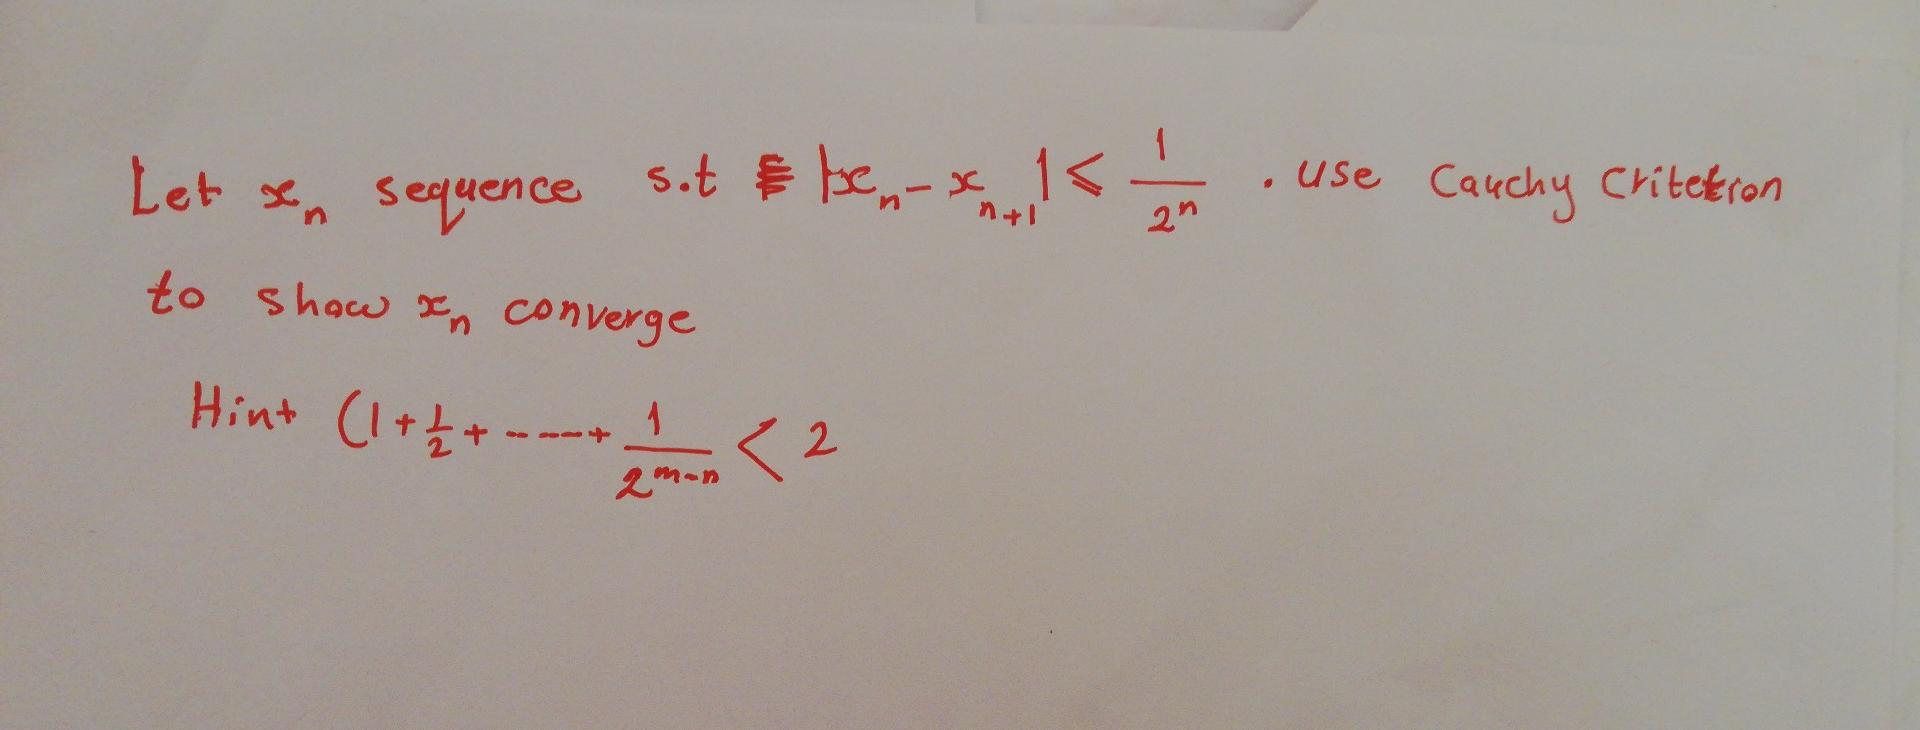 Let xₙ sequence s.t |xₙ - xₙ₊₁| ≤ 1/2ⁿ . use Cauchy Criterion
to show xₙ converge
Hint (1 + 1/2 + ----- + 1/2ᵐ⁻ⁿ < 2